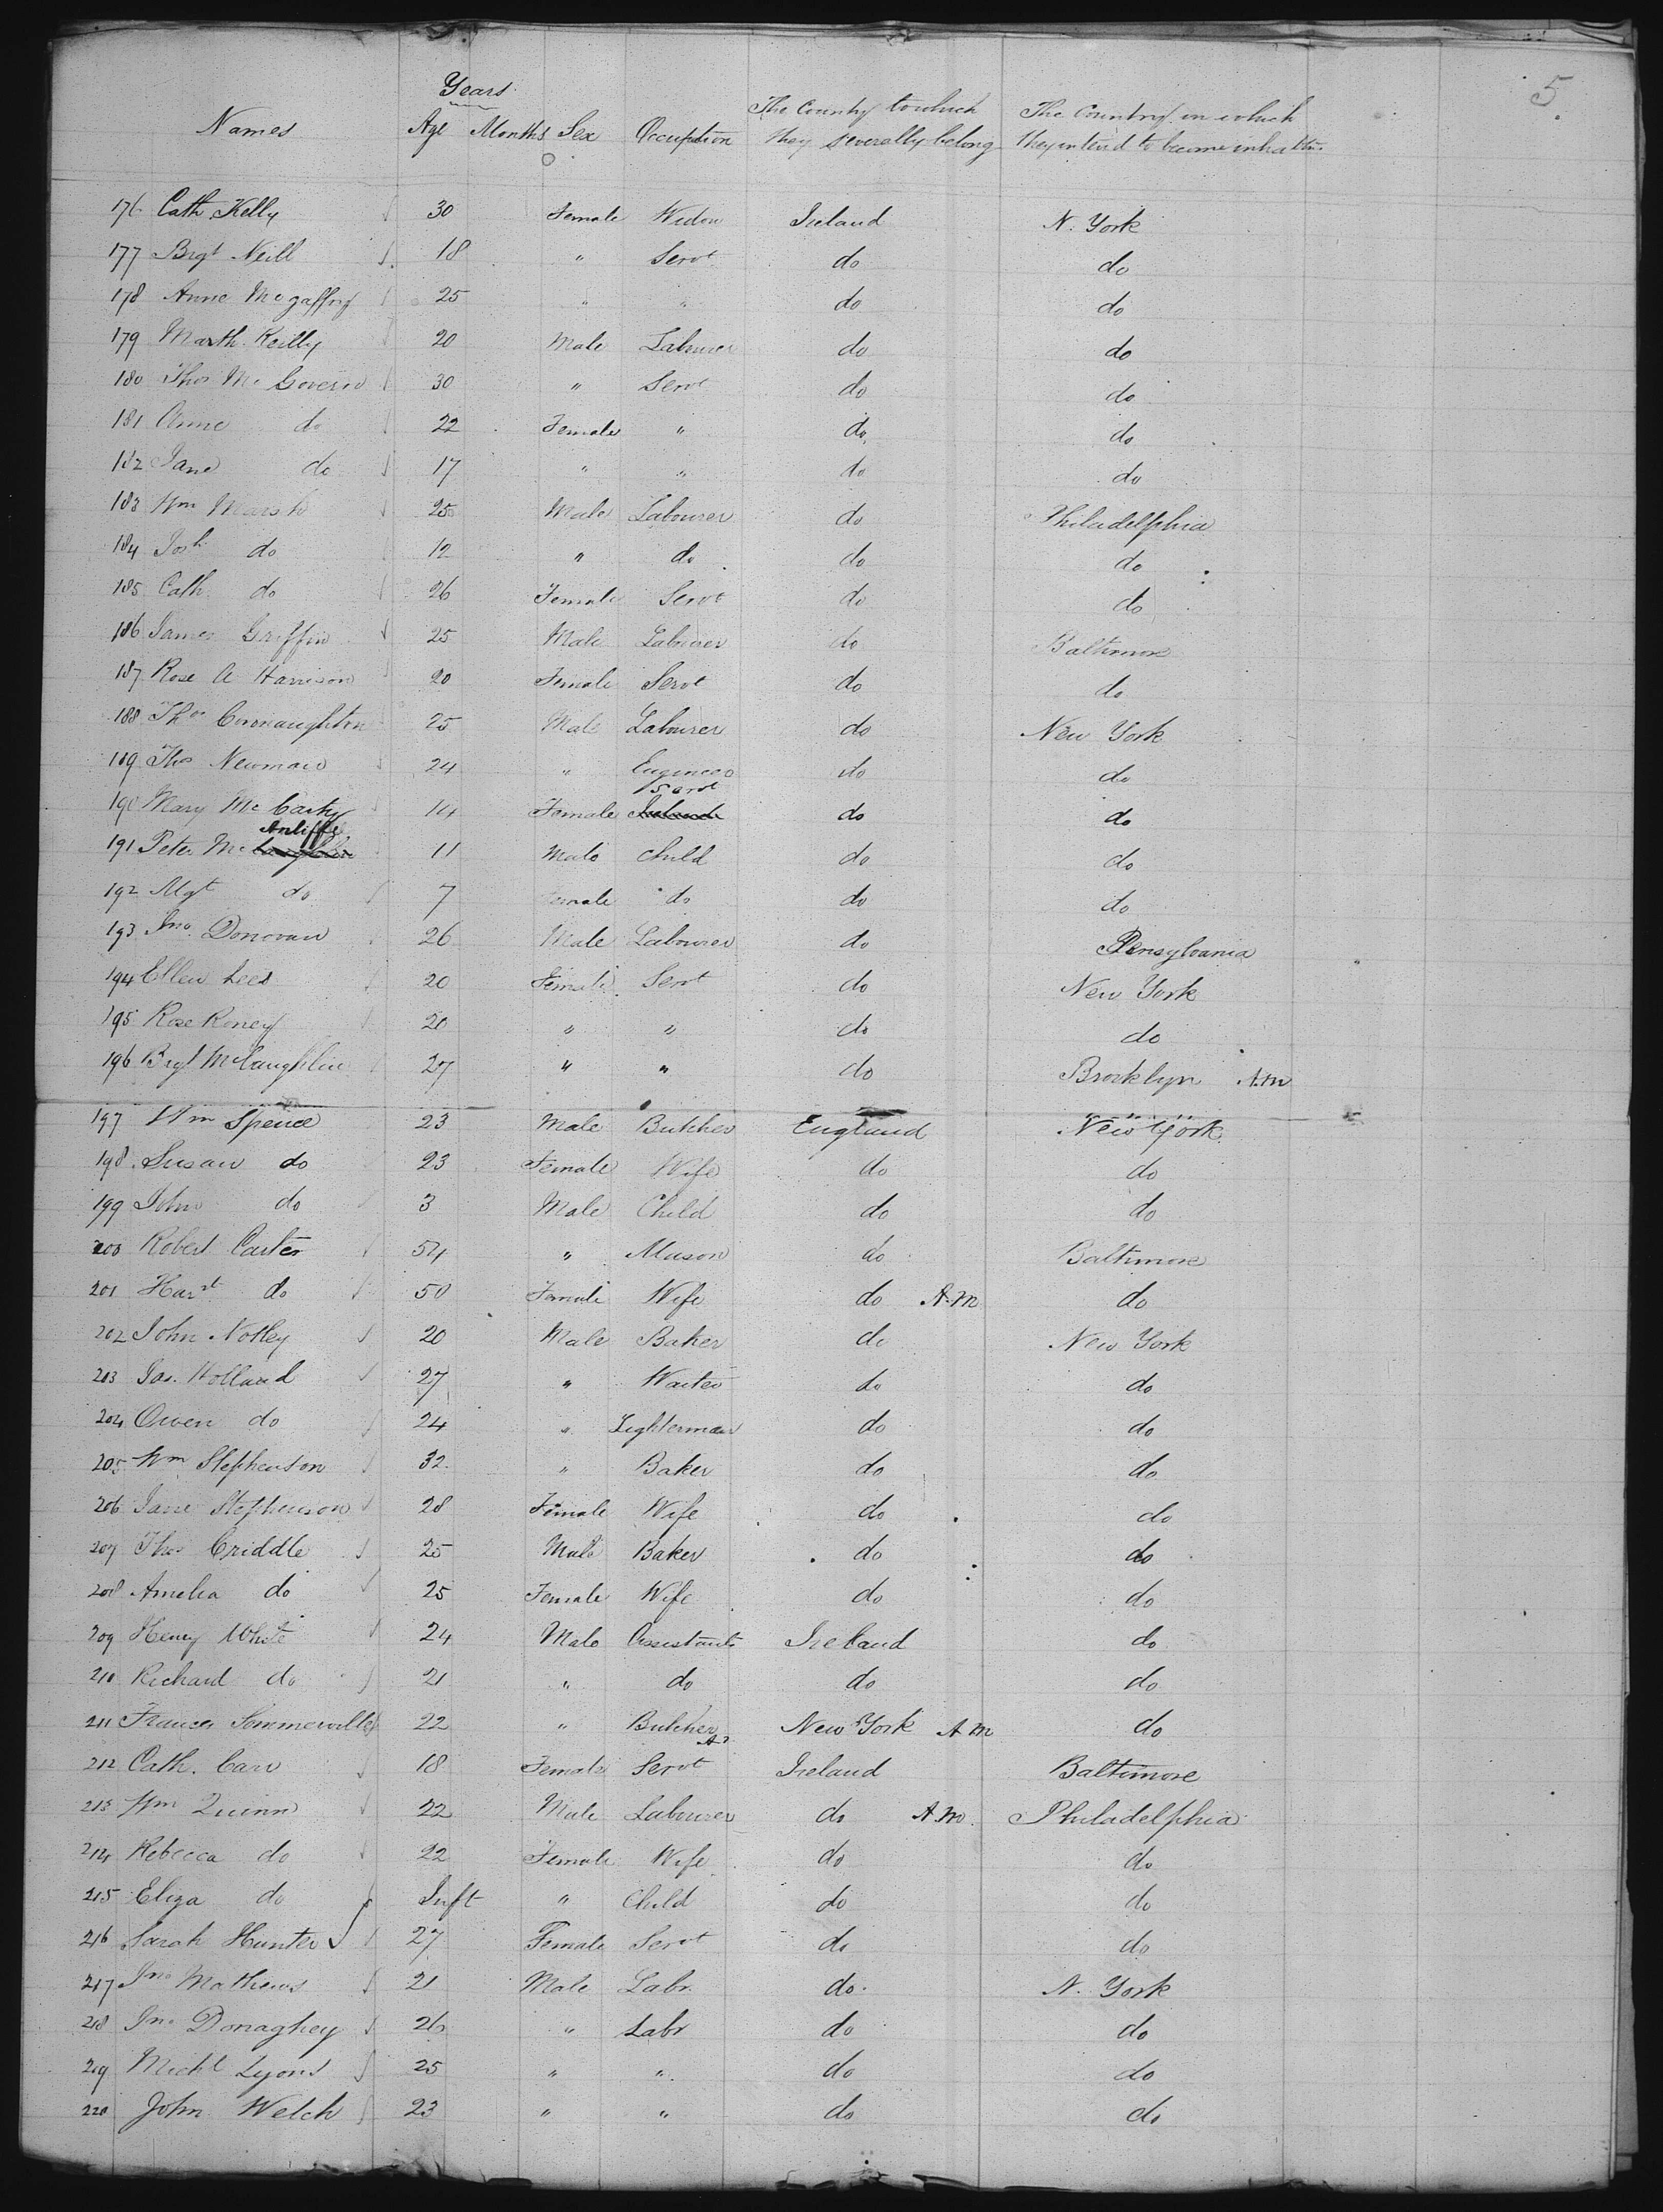 5
Years
Names Age Months Sex Occupation The Country to which they severally belong The Country in which they intend to become inhabtts.
176 Cath. Kelly 30 Female Widow Ireland N. York
177 Brgt Neill 18 " Servt do do
178 Anne McGaffny 25 " " do do
179 Marth. Reilly 20 Male Labourer do do
180 Thos McGovern 30 " Servt do do
181 Anne do 22 Female " do do
182 Jane do 17 " " do do
183 Wm Marsh 25 Male Labourer do Philadelphia
184 Josh do 12 " do do do
185 Cath do 26 Female Servt do do
186 James Griffin 25 Male Labourer do Baltimore
187 Rose A Harrison 20 Female Servt do do
188 Thos Connaughton 25 Male Labourer do New York
189 Thos Newman 24 " Engineer do do
190 Mary McCarty 14 Female Servt do do
191 Peter McAnliffe 11 Male Child do do
192 Mgt do 7 Female do do do
193 Jno. Donovan 26 Male Labourer do Pensylvania
194 Ellen Lees 20 Female Servt do New York
195 Rose Roney 20 " " do do
196 Brgt McLaughlin 27 " " do Brooklyn A.M
197 Wm Spence 23 Male Butcher England New York
198 Susan do 23 Female Wife do do
199 John do 3 Male Child do do
200 Robert Carter 54 " Mason do Baltimore
201 Hart do 50 Female Wife do A.M do
202 John Notley 20 Male Baker do New York
203 Jas. Holland 27 " Waiter do do
204 Owen do 24 " Lighterman do do
205 Wm Stephenson 32 " Baker do do
206 Jane Stephenson 28 Female Wife do do
207 Thos Criddle 25 Male Baker do do
208 Amelia do 25 Female Wife do do
209 Henry White 24 Male Assistant Ireland do
210 Richard do 21 " do do do
211 Frances Sommerville 22 " Butcher New York A M do
212 Cath. Carr 18 Female Servt Ireland Baltimore
213 Wm Quinn 22 Male Labourer do A.M. Philadelphia
214 Rebecca do 22 Female Wife do do
215 Eliza do Inft " Child do do
216 Sarah Hunter 27 Female Servt do do
217 Jno Mathews 21 Male Labr. do N. York
218 Jno Donaghey 26 " Labr do do
219 Michl Lyons 25 " " do do
220 John Welch 23 " " do do